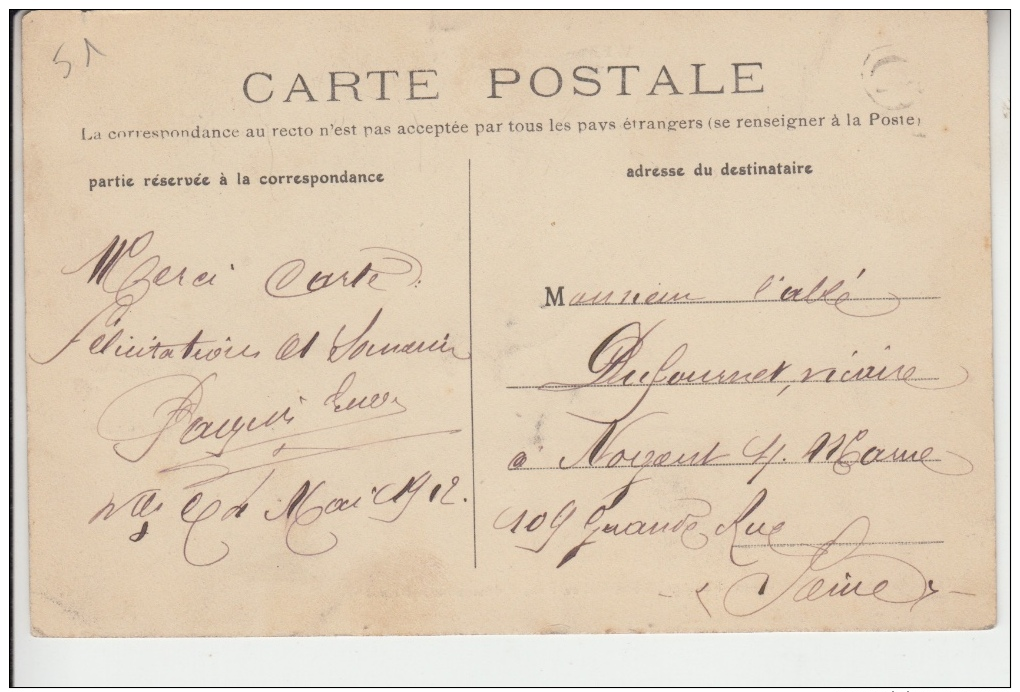 51
CARTE POSTALE
La correspondance au recto n'est pas acceptée par tous les pays étrangers (se renseigner à la Poste)
partie réservée à la correspondance
Merci Carte.
Félicitations et
Mai 1912.
adresse du destinataire
Monsieur l'abbé
Dufournet, vicaire
à Nogent s/. Marne
109 Grande Rue
(Seine)